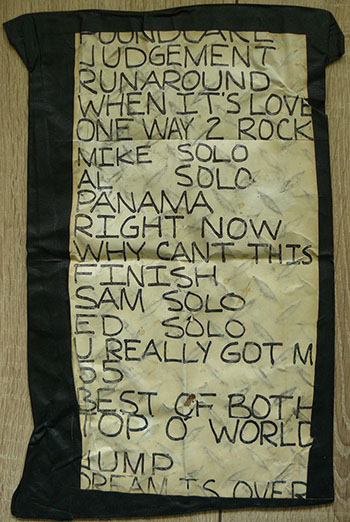 POUNDCAKE
JUDGEMENT
RUNAROUND
WHEN IT'S LOVE
ONE WAY 2 ROCK
MIKE SOLO
AL SOLO
PANAMA
RIGHT NOW
WHY CANT THIS
FINISH
SAM SOLO
ED SOLO
U REALLY GOT M
55
BEST OF BOTH
TOP O' WORLD
JUMP
DREAM IS OVER